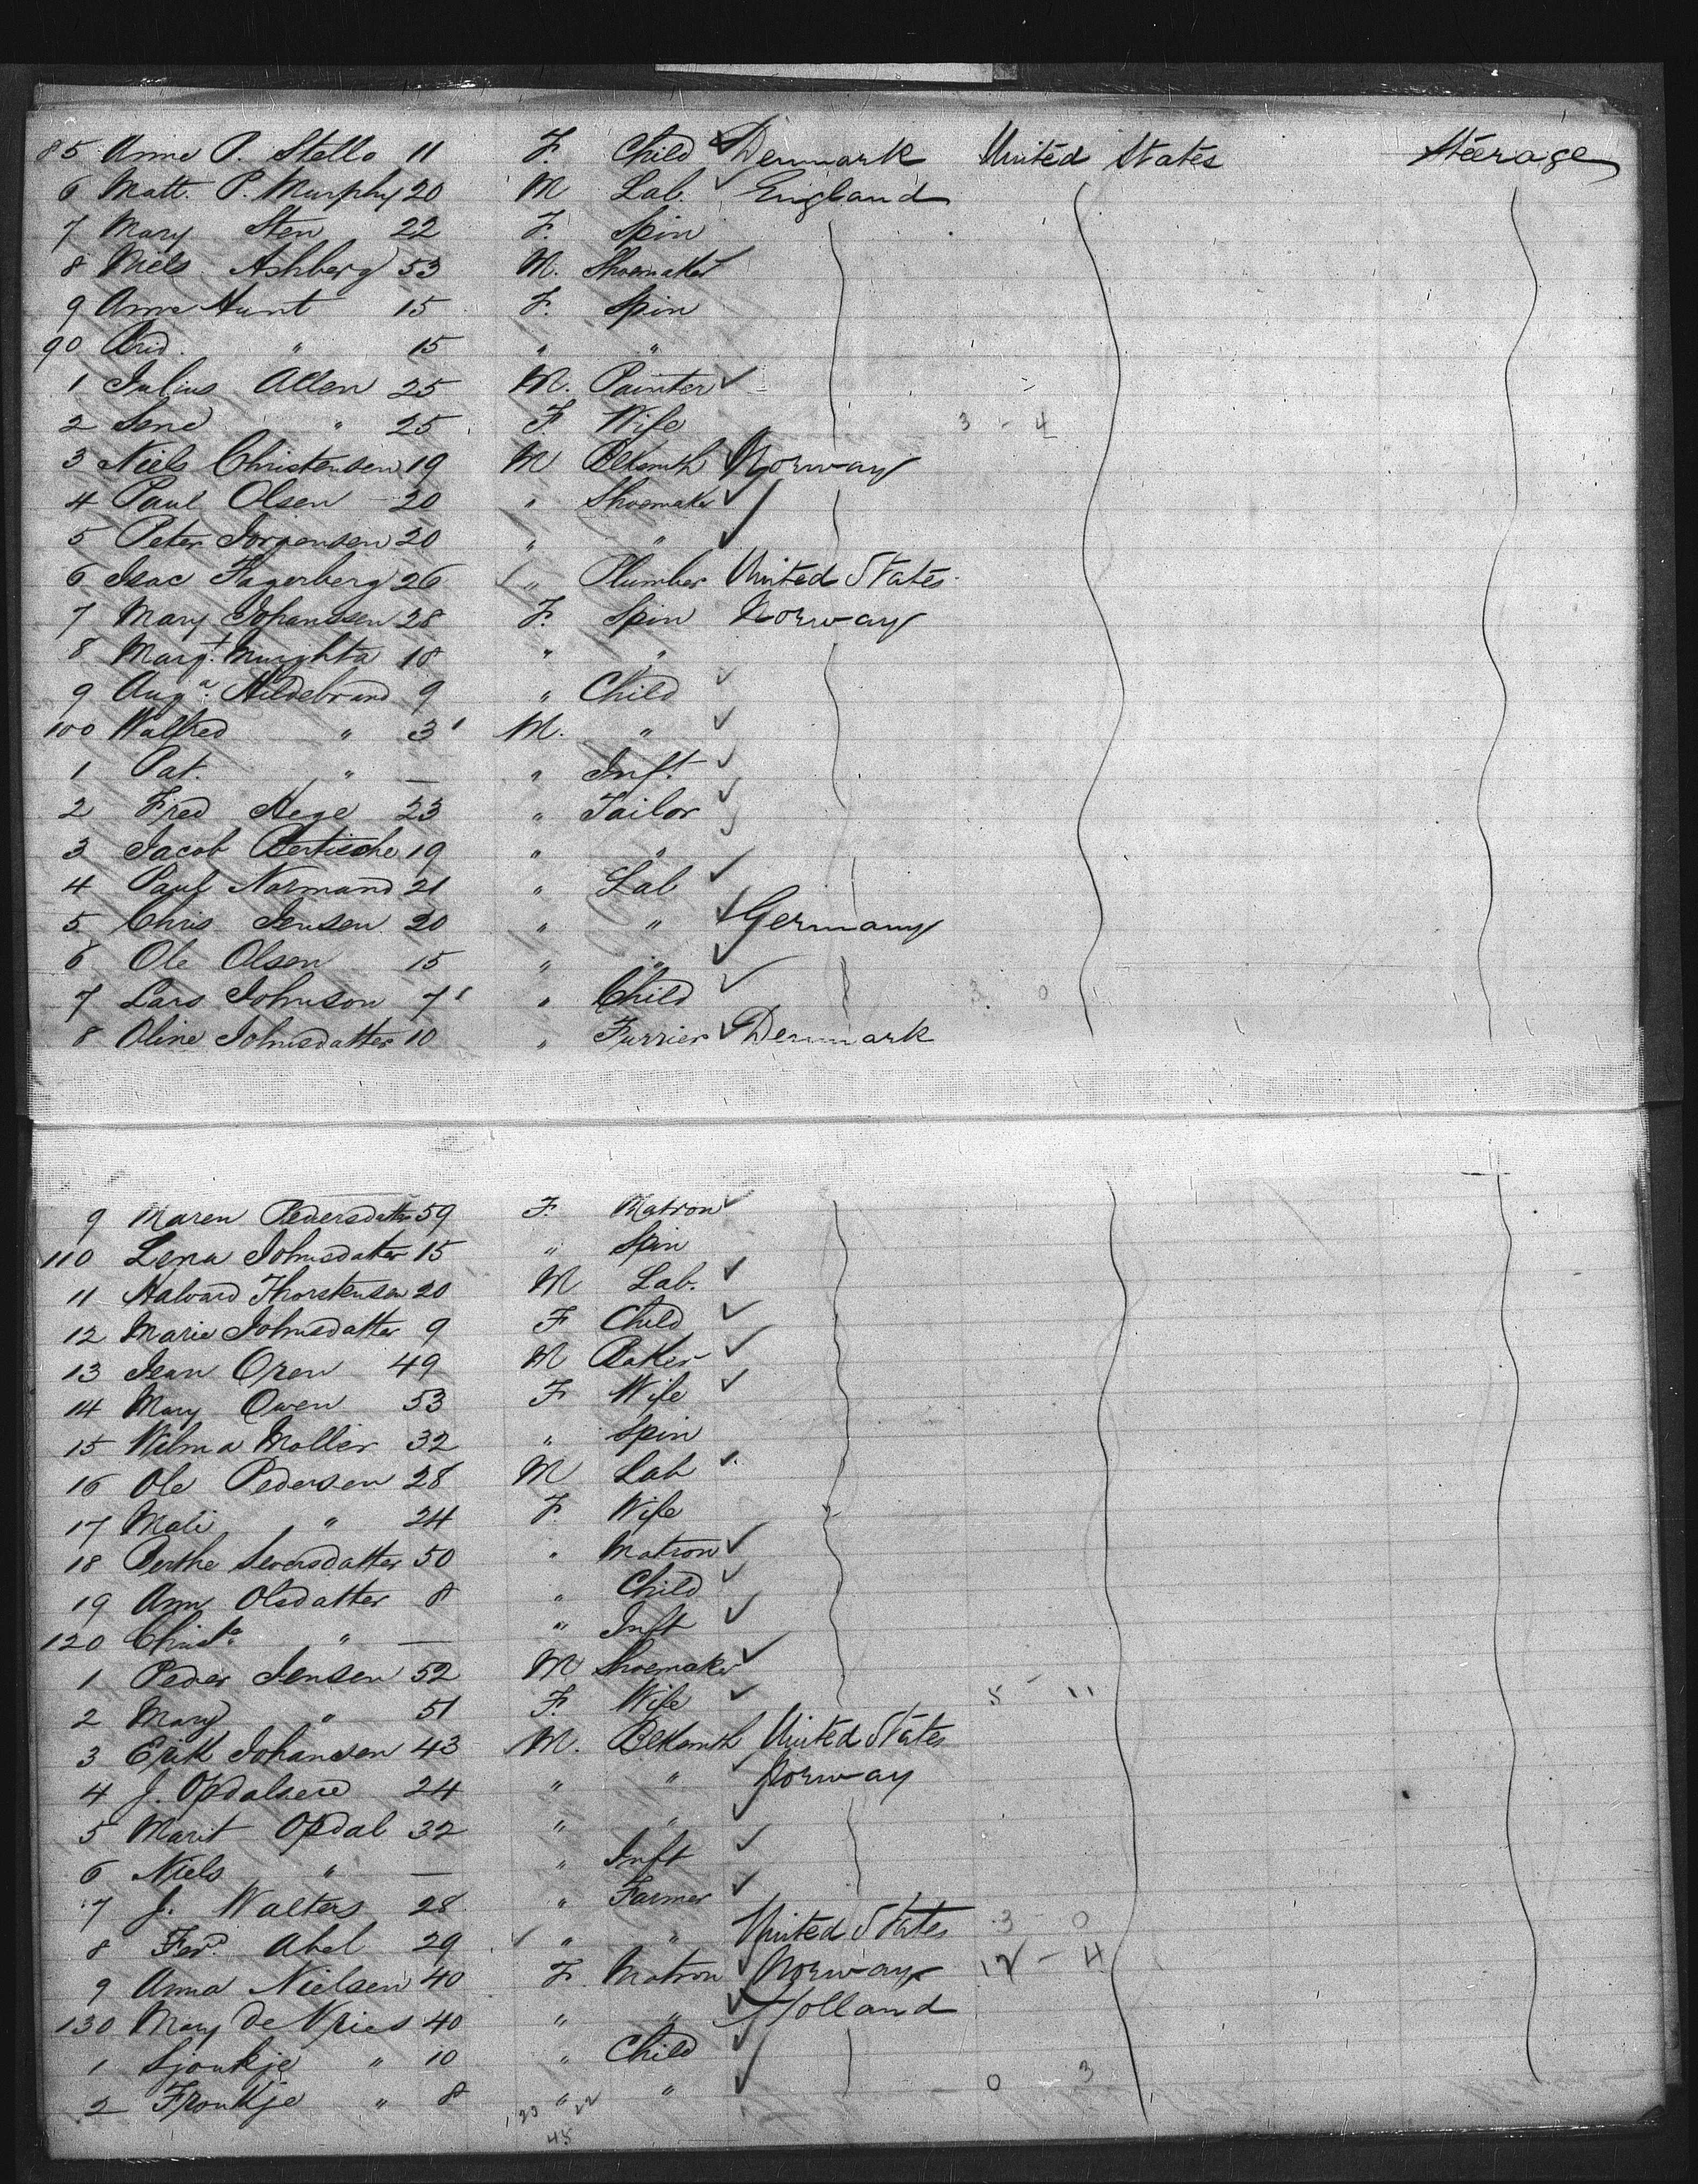 85 Anne P. Stello 11 F. Child Denmark United States Steerage
6 Matt. P. Murphy 20 M Lab. England
7 Mary Sten 22 F. Spin
8 Niels Ashberg 53 M. Shoemaker
9 Anna Hunt 15 F. Spin
90 Brid. " 15 " "
1 Julius Allen 25 M. Painter
2 Lene " 25 F. Wife 3 - 4
3 Niels Christensen 19 M Blksmth Norway
4 Paul Olsen 20 " Shoemaker
5 Peter Jorgensen 20 " "
6 Isac Fagerberg 26 " Plumber United States
7 Mary Johanssen 28 F. Spin Norway
8 Margt. Murghta 18 " "
9 Auga. Hildebrand 9 " Child
100 Walfred " 3 M. "
1 Pat. " — " Inft.
2 Fred Hege 23 " Tailor
3 Jacob Bertische 19 " "
4 Paul Normand 21 " Lab
5 Chris Jensen 20 " " Germany
6 Ole Olsen 15 " "
7 Lars Johnson 7 " Child 3 0
8 Oline Johnsdatter 10 " Furrier Denmark
9 Maren Pedersdatter 59 F. Matron
110 Lena Johnsdatter 15 " Spin
11 Halvard Thorstensen 20 M Lab.
12 Marie Johnsdatter 9 F Child
13 Jean Oren 49 M Baker
14 Mary Owen 53 F Wife
15 Wilma Moller 32 " Spin
16 Ole Pedersen 28 M Lab
17 Mali " 24 F. Wife
18 Berthe Seversdatter 50 " Matron
19 Ann Olsdatter 8 " Child
120 Christa " — " Inft
1 Peder Jensen 52 M Shoemaker
2 Mary " 51 F. Wife 5 - 11
3 Erik Johansen 43 M. Blksmth United States
4 J. Opdalseie 24 " " Norway
5 Marit Opdal 32 " "
6 Niels " — " Inft
7 J. Walters 28 " Farmer
8 Ferd. Abel 29 " " United States 3 0
9 Anna Nielsen 40 F. Matron Norway 12 - 4
130 Mary De Vries 40 " " Holland
1 Sjoukje " 10 " Child
2 Froukje " 8 " " 0 3
23 22
45